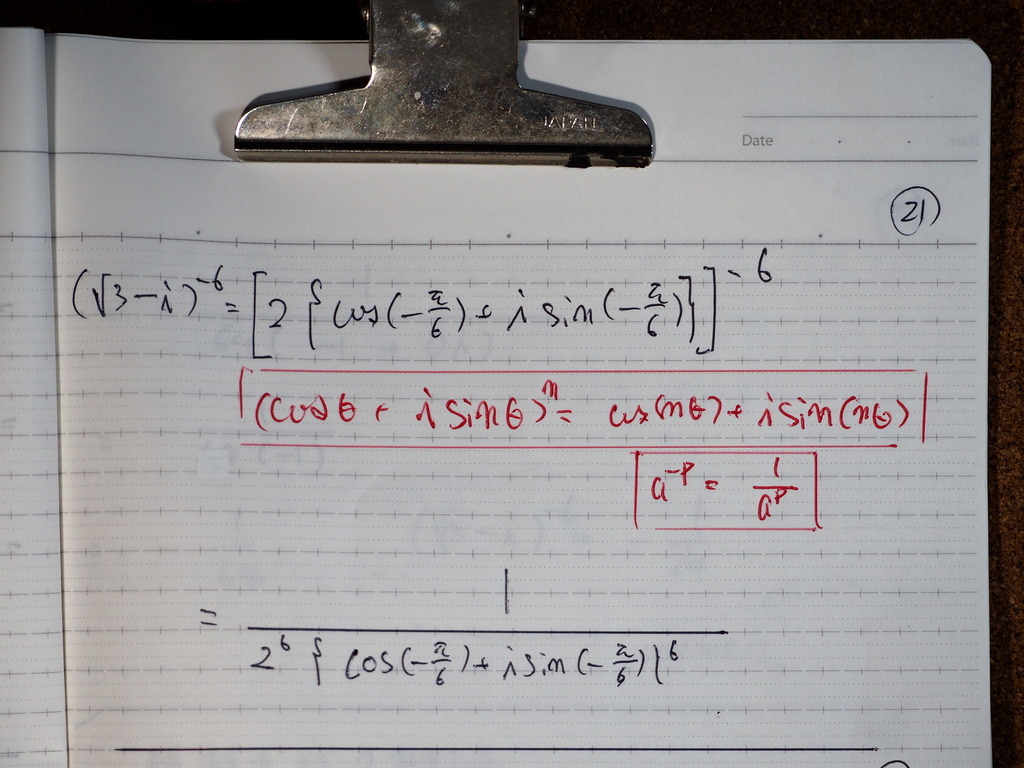 JAPAN
Date
21
(√3-i)^-6 = [2{cos(-π/6)+i sin(-π/6)}]^-6
(cosθ + i sinθ)^n = cos(nθ)+ i sin(nθ)
a^-p = 1/a^p
= 1/2^6{cos(-π/6)+i sin(-π/6)}^6